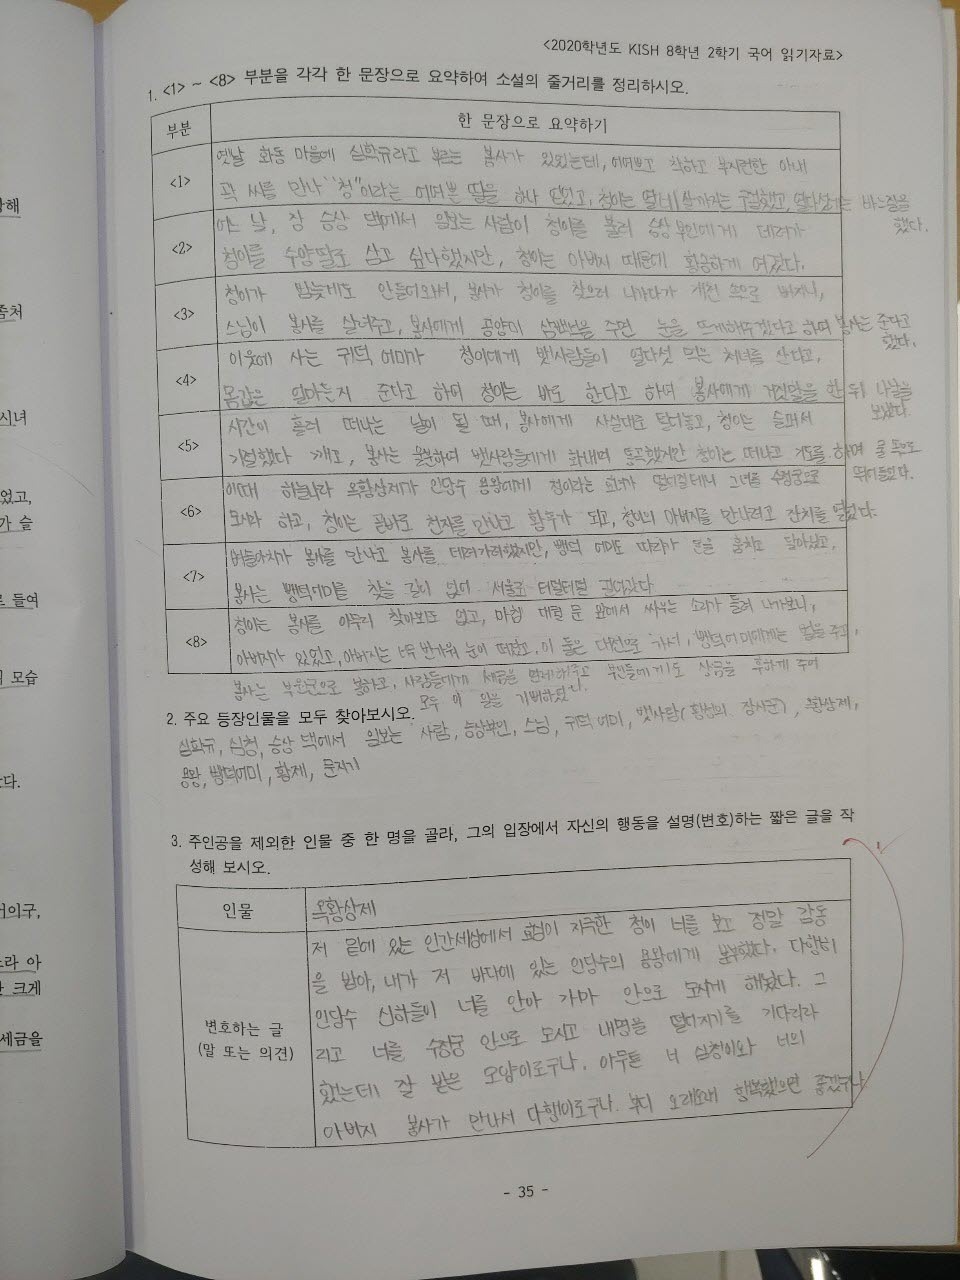 <2020학년도 KISH 8학년 2학기 국어 읽기자료>
1. <1> ~ <8> 부분을 각각 한 문장으로 요약하여 소설의 줄거리를 정리하시오.
부분
한 문장으로 요약하기
<1>
옛날 화동 마을에 심학규라고 부르는 봉사가 있었는데, 어여쁘고 착하고 부지런한 아내
곽 씨를 만나 "청"이라는 어여쁜 딸을 하나 낳았고, 청이는 열네 살까지는 구걸했고, 바느질을
했다.
<2>
어느 날, 장 승상 댁에서 일보는 사람이 청이를 불러 승상 부인에게 데려가
청이를 수양딸로 삼고 싶다했지만, 청이는 아버지 때문에 황급하게 여겼다.
<3>
청이가 밤늦게도 안들어와서, 봉사가 청이를 찾으러 나가다가 개천 속으로 빠지니,
스님이 봉사를 살려주고, 봉사에게 공양미 삼백석을 주면 눈을 뜨게해주겠다고 하며 봉사는 준다고
했다.
<4>
이웃에 사는 귀덕 어미가 청이에게 뱃사람들이 열다섯 먹은 처녀를 산다고,
몸값은 얼마든지 준다고 하여 청이는 바로 한다고 하며 봉사에게 거짓말을 한 뒤 나날을
보냈다.
<5>
시간이 흘러 떠나는 날이 될 때, 봉사에게 사실대로 털어놓고, 청이는 슬퍼서
기절했다 깨고, 봉사는 울분하며 뱃사람들에게 화내며 통곡했지만 청이는 떠나고 기도를 하며 물 속으로
뛰어들었다.
<6>
이때 하늘나라 옥황상제가 인당수 용왕에게 청이라는 효녀가 떨어질테니 그녀를 수정궁으로
모셔라 하고, 청이는 곧바로 천자를 만나고 황후가 되고, 청이의 아버지를 만나려고 잔치를 열었다.
<7>
벼슬아치가 봉사를 만나고 봉사를 데려가려했지만, 뺑덕 어미도 따라가 돈을 훔치고 달아났고,
봉사는 뺑덕어미를 찾을 길이 없어 서울로 터덜터덜 걸어갔다
<8>
청이는 봉사를 아무리 찾아봐도 없고, 마침 대궐 문 앞에서 싸우는 소리가 들려 나가보니,
아버지가 있었고, 아버지는 너무 반가워 눈이 떠졌고, 이 둘은 대전으로 가서, 뺑덕어미에게는 벌을 주고,
봉사는 부원군으로 봉하고, 사람들에게 세금을 면제해주고 부인들에게도 상금을 후하게 주어
모두 이 일을 기뻐하였다.
2. 주요 등장인물을 모두 찾아보시오.
심학규, 심청, 승상 댁에서 일보는 사람, 승상부인, 스님, 귀덕 어미, 뱃사람, 옥황상제,
용왕, 뺑덕어미, 황제, 문지기
3. 주인공을 제외한 인물 중 한 명을 골라, 그의 입장에서 자신의 행동을 설명(변호)하는 짧은 글을 작
성해 보시오.
인물
옥황상제
변호하는 글
(말 또는 의견)
저 밑에 있는 인간세상에서 효성이 지극한 청이 너를 보고 정말 감동
을 받아, 내가 저 바다에 있는 인당수의 용왕에게 분부했다. 다행히
인당수 신하들이 너를 안아 가마 안으로 모시게 해놨다. 그
리고 너를 수정궁 안으로 모시고 내명을 떨어지기를 기다리라
했는데 잘 받은 모양이로구나. 아무튼 너 심청이와 너의
아버지 봉사가 만나서 다행이로구나. 부디 오래오래 행복했으면 좋겠구나
- 35 -
해
줌처
시녀
었고,
가 슬
로 들여
모습
다.
어의구,
라 아
크게
세금을